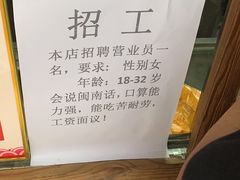 招工
本店招聘营业员一
名，要求：性别女
年龄：18-32 岁
会说闽南话，口算能
力强，能吃苦耐劳，
工资面议！